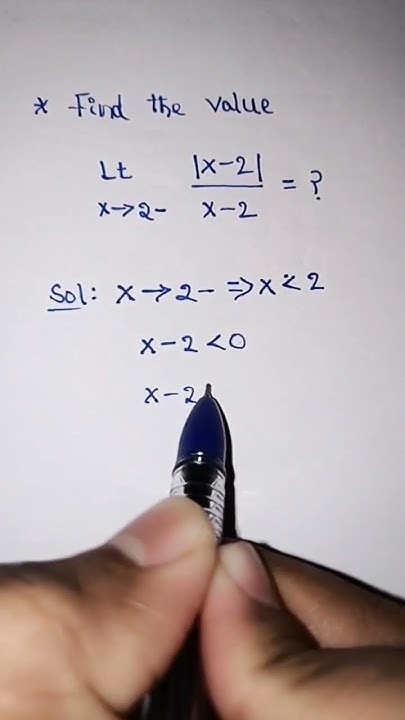 * Find the value
Lt x→2- |x-2| / x-2 = ?
Sol: x→2- ⇒ x<2
x-2<0
x-2